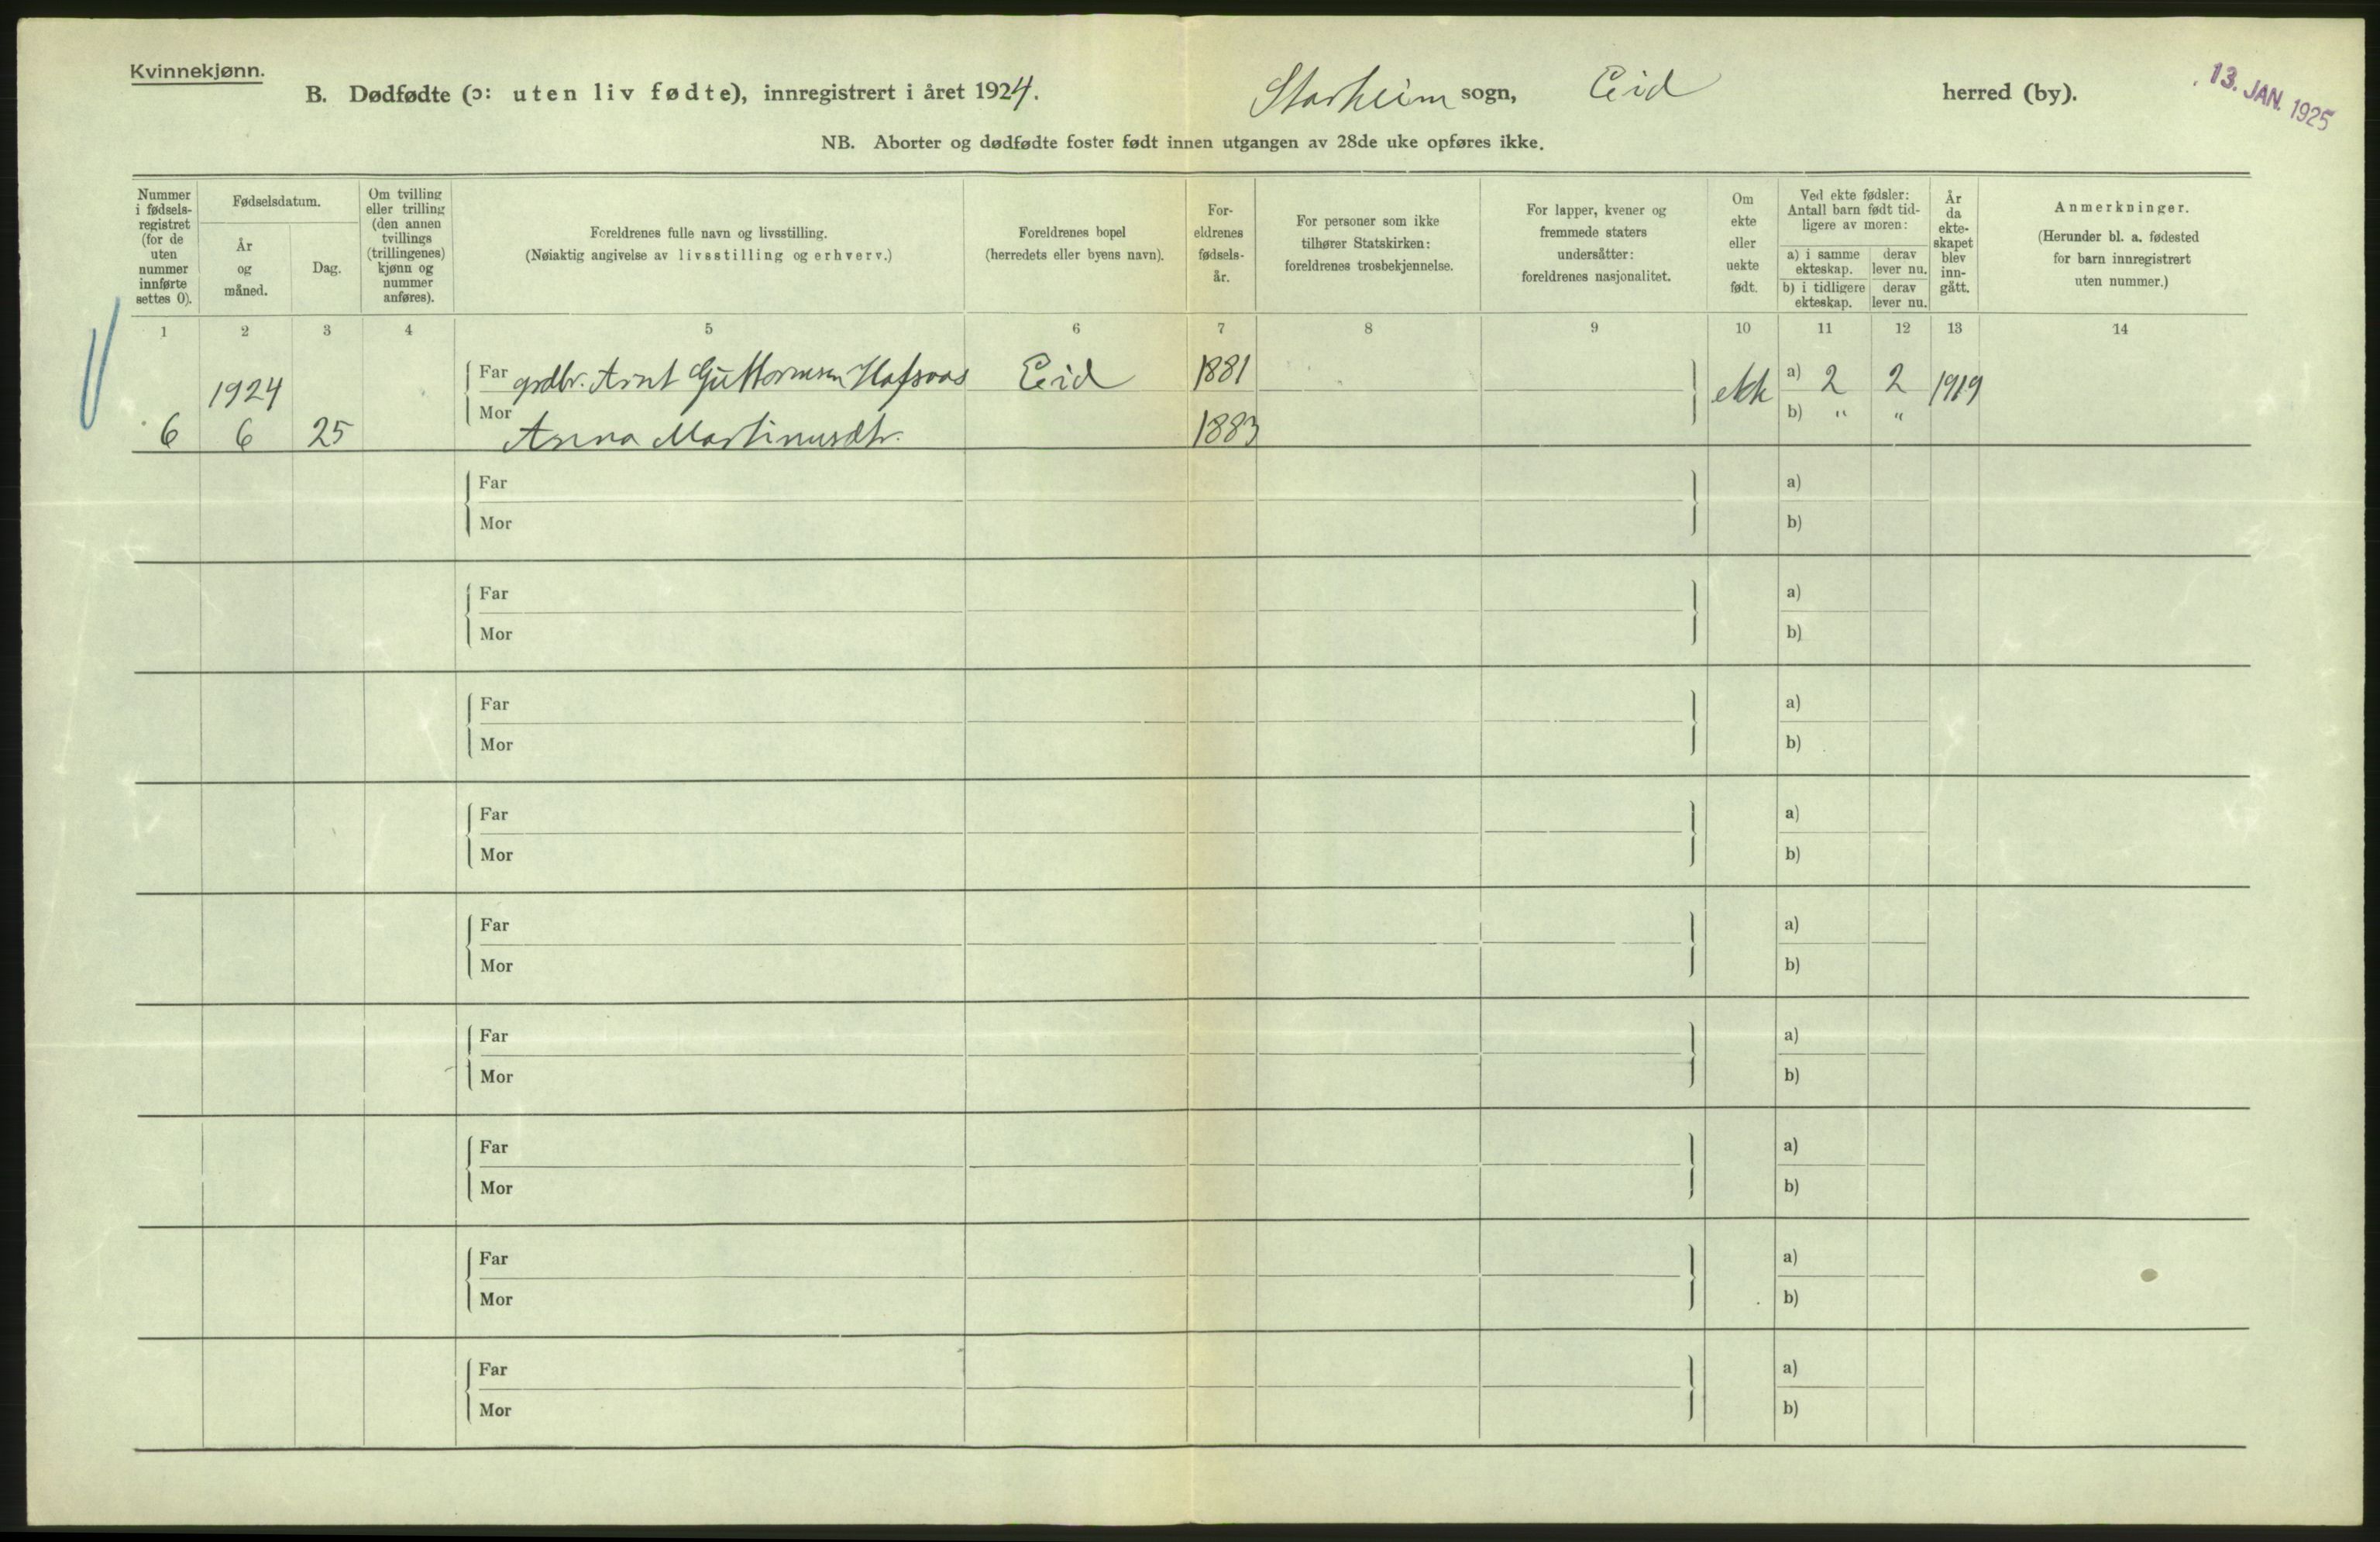 Kvinnekjønn.
B. Dødfødte (ɔ: uten liv fødte), innregistrert i året 1924. Starheim sogn, Eid herred (by).
13. JAN. 1925
NB. Aborter og dødfødte foster født innen utgangen av 28de uke opføres ikke.
Nummer
i fødsels-
registret
(for de
uten
nummer
innførte
settes 0).
Fødselsdatum.
År
og
måned.
Dag.
Om tvilling
eller trilling
(den annen
tvillings
(trillingenes)
kjønn og
nummer
anføres).
Foreldrenes fulle navn og livsstilling.
(Nøiaktig angivelse av livsstilling og erhverv.)
Foreldrenes bopel
(herredets eller byens navn).
For-
eldrenes
fødsels-
år.
For personer som ikke
tilhører Statskirken:
foreldrenes trosbekjennelse.
For lapper, kvener og
fremmede staters
undersåtter:
foreldrenes nasjonalitet.
Om
ekte
eller
uekte
født.
Ved ekte fødsler:
Antall barn født tid-
ligere av moren:
a) i samme
ekteskap.
derav
lever nu.
b) i tidligere
ekteskap.
derav
lever nu.
År
da
ekte-
skapet
blev
inn-
gått.
Anmerkninger.
(Herunder bl. a. fødested
for barn innregistrert
uten nummer.)
1 2 3 4 5 6 7 8 9 10 11 12 13 14
Far grdbr. Arnt Guttormsen Hafsaas Eid 1881
1924 ekte a) 2 2 1919
Mor b) " "
6 6 25 Anna Martinusdtr. 1883
Far a)
Mor b)
Far a)
Mor b)
Far a)
Mor b)
Far a)
Mor b)
Far a)
Mor b)
Far a)
Mor b)
Far a)
Mor b)
Far a)
Mor b)
Far a)
Mor b)